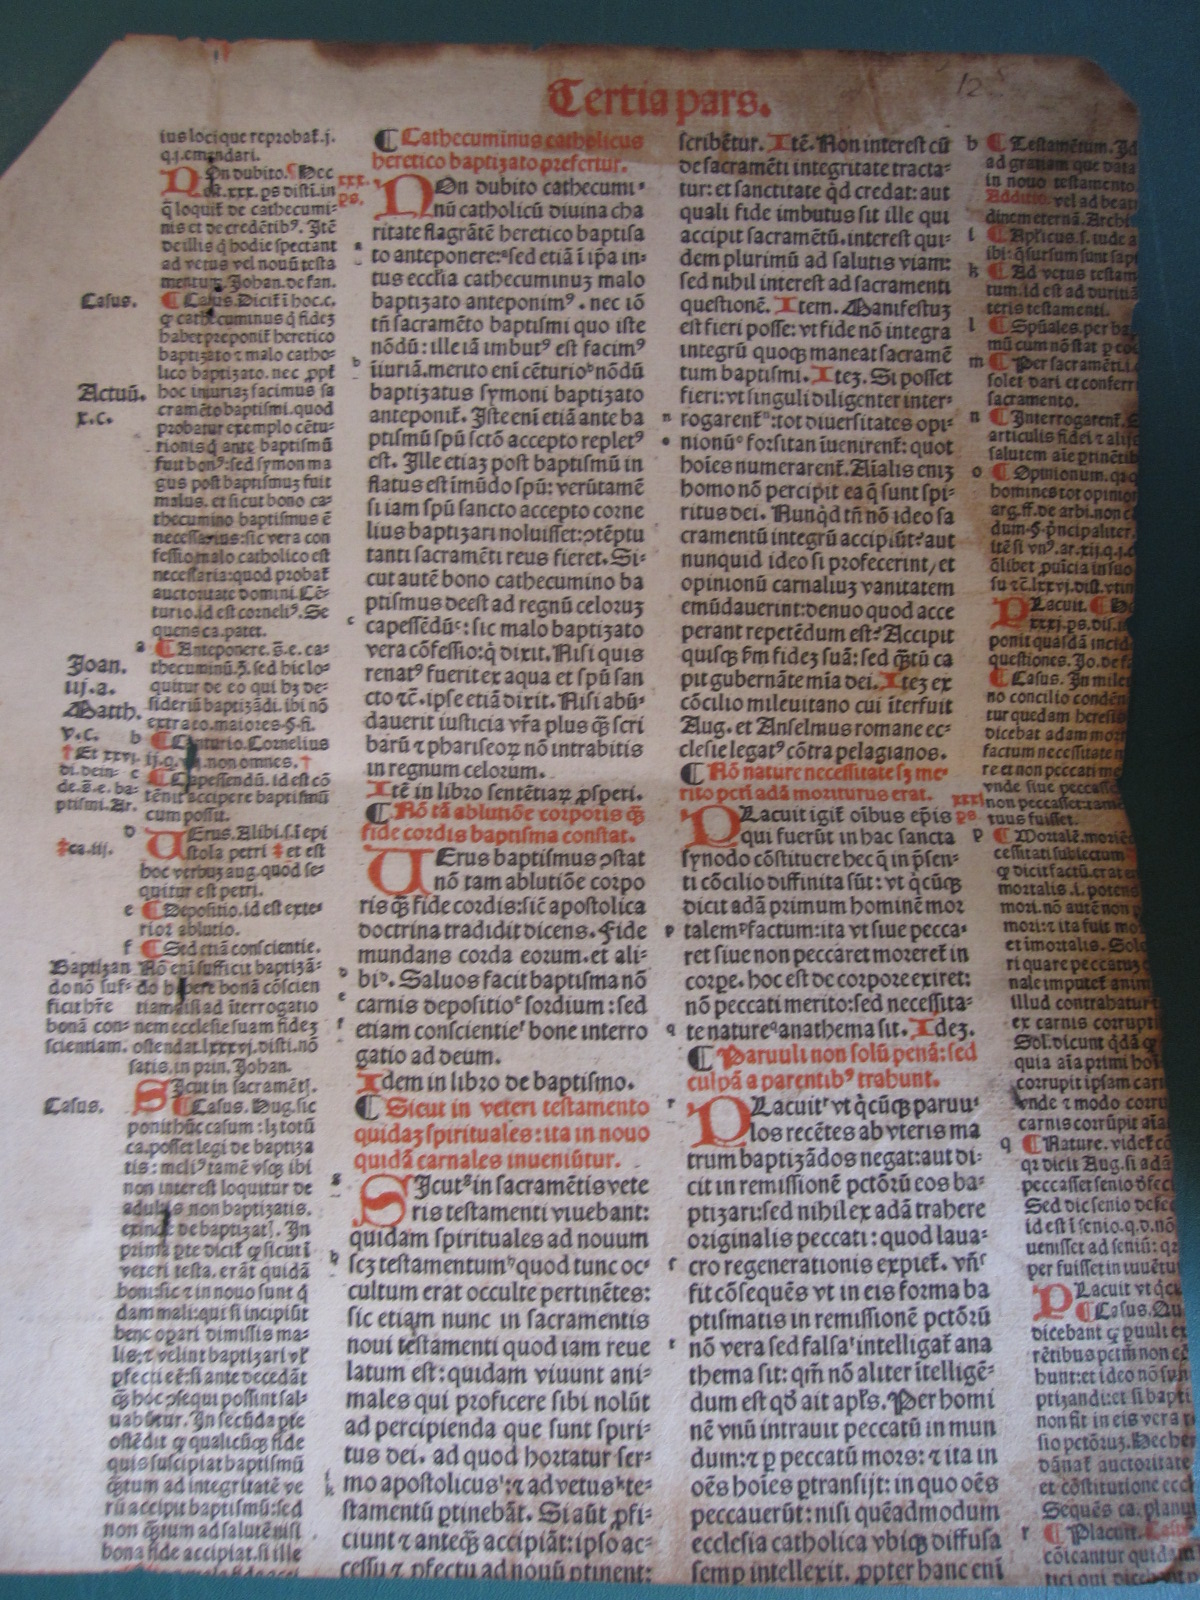 Tertia pars.
12
ius loci que reprobat̄.j.
q.j.emendari.
NOn dubito.¶Hec
di.xxx.ps disti.in
q̄ loquit̄ de cathecumi-
nis et de credētibꝰ. Itē
de illis q̄ hodie spectant
ad vetus vel nouū testa
mentum. Johan. de fan.
Casus.
¶ Casus. Dicit̄ ī hoc.c.
ꝙ cathecuminus q̄ fidez
habet preponit̄ heretico
baptizato ⁊ malo catho-
lico baptizato. nec ꝓpt̄
Actuū.
x.c.
hoc iniuriaz facimus sa
cramēto baptismi. quod
probatur exemplo cētu-
rionis q̄ ante baptismū
fuit bonꝰ: sed symon ma
gus post baptismuz fuit
malus. et sicut bono ca-
thecumino baptismus ē
necessarius: sic vera con
fessio malo catholico est
necessaria: quod probat̄
auctoritate domini. Cē-
turio. id est cornelꝰ. Se
quens ca. patet.
a ¶ Anteponere. s̄.e. ca-
thecuminū.ʒ. sed hic lo-
Joan.
iij.a.
quitur de eo qui hʒ de-
sideriū baptizādi. ibi nō
Matth.
v.c.
extra eo. maiores.§.fi.
b ¶ Centurio. Cornelius
†Et xxvj.
di. dein-
de.s̄.e. ba-
ptismi. Ar.
ij.q.vij. non omnes.†
c ¶ Capessendū. id est cō
tēnit accipere baptismū
cum possit.
D VErus. Alibi.s.ī epi
‡ca.iij.
stola petri ‡ et est
hoc verbuz aug. quod se-
quitur est petri.
e ¶ Depositio. id est exte-
rior ablutio.
f ¶ Sed etiā conscientie.
Baptizan
do nō suf-
ficit hr̄e
bonā con-
scientiam.
Nō eni sufficit baptizā-
do habere bonā cōscien
tiam nisi ad īterrogatio
nem ecclesie suam fidez
ostendat. lxxxvj. disti. nō
satis. in prin. Johan.
SIcut in sacramēt.
Casus.
¶ Casus. Hug. sic
ponit hūc casum: lʒ totū
ca. posset legi de baptiza
tis: meliꝰ tamē vsqʒ ibi
non interest loquitur de
adultis non baptizatis.
exinde de baptizat. In
prima ꝑte dicit̄ ꝙ sicut ī
veteri testa. erāt quidā
boni: sic ⁊ in nouo sunt q̄
dam mali: qui si incipiūt
bene opari dimissis ma-
lis: ⁊ velint baptizari vl̄
ꝑfecti eē: si ante decedāt
q̄ʒ hoc ꝯsequi possint sal-
uabūtur. In secūda ꝑte
ostēdit ꝙ qualicūqʒ fide
quis suscipiat baptismū
q̄tum ad integritatē ve
rū accipit baptismū: sed
non q̄tum ad salutē nisi
bona fide accipiat. si ille
¶ Cathecuminus catholicus
heretico baptizato prefertur.
xxx.
ps.
NOn dubito cathecumi-
nū catholicū diuina cha
ritate flagrātē heretico baptisa
to anteponere:ᵃ sed etiā ī ip̄a in-
tus eccl̄ia cathecuminuz malo
baptizato anteponimꝰ. nec iō
tn̄ sacramēto baptismi quo iste
nōdū: ille iā imbutꝰ est facimꝰ
iiuriā. merito eni cēturioᵇ nōdū
baptizatus symoni baptizato
anteponit̄. Iste eni etiā ante ba
ptismū spū sctō accepto repletꝰ
est. Ille etiaz post baptismū in
flatus est imūdo spū: verūtamē
si iam spū sancto accepto corne
lius baptizari noluisset: ꝯtēptu
tanti sacramēti reus fieret. Si-
cut autē bono cathecumino ba
ptismus deest ad regnū celoruz
capessēdūᶜ: sic malo baptizato
vera cōfessio: q̄ dixit. Nisi quis
renatꝰ fuerit ex aqua et spū san
cto ⁊c̄. ipse etiā dixit. Nisi abū-
dauerit iusticia vr̄a plus q̄ʒ scri
barū ⁊ phariseoꝝ nō intrabitis
in regnum celorum.
Itē in libro sentētiaꝝ ꝓsperi.
¶ Nō tā ablutiōe corporis q̄ʒ
fide cordis baptisma constat.
VErus baptismus ꝯstat
nō tam ablutiōe corpo
ris q̄ʒ fide cordis: sic̄ apostolica
doctrina tradidit dicens. Fide
mundans corda eorum. et ali-
biᴰ. Saluos facit baptisma nō
carnis depositioᵉ sordium: sed
etiam conscientieᶠ bone interro
gatio ad deum.
Idem in libro de baptismo.
¶ Sicut in veteri testamento
quidaz spirituales: ita in nouo
quidā carnales inueniūtur.
SIcutᵍ in sacramētis vete
ris testamenti viuebant:
quidam spirituales ad nouum
scʒ testamentumʰ quod tunc oc-
cultum erat occulte pertinētes:
sic etiam nunc in sacramentis
noui testamenti quod iam reue
latum est: quidam viuunt ani-
males qui proficere sibi nolūt
ad percipienda que sunt spiri-
tus dei. ad quod hortatur ser-
mo apostolicusⁱ: ⁊ ad vetusᵏ te-
stamentū ꝑtinebāt. Si aūt ꝓfi-
ciunt ⁊ anteq̄ʒ accipiāt: ipso ac-
cessu ⁊ ꝓfectu ad nouū ꝑtinent:
scribētur. Itē. Non interest cū
de sacramēti integritate tracta-
tur: et sanctitate qd̄ credat: aut
quali fide imbutus sit ille qui
accipit sacramētū. interest qui-
dem plurimū ad salutis viam:
sed nihil interest ad sacramenti
questionē. Item. Manifestuʒ
est fieri posse: vt fide nō integra
integrū quoqʒ maneat sacramē
tum baptismi. Iteʒ. Si posset
fieri: vt singuli diligenter inter-
rogarent̄ⁿ: tot diuersitates opi-
nionūᵒ forsitan īuenirent̄: quot
hoīes numerarent̄. Aīalis eniʒ
homo nō percipit ea q̄ sunt spi-
ritus dei. Nunqd̄ tn̄ nō ideo sa
cramentū integrū accipiūt? aut
nunquid ideo si profecerint, et
opinionū carnaliuʒ vanitatem
emūdauerint: denuo quod acce
perant repetēdum est? Accipit
quisqʒ ꝓm fideʒ suā: sed q̄tū ca
pit gubernāte mīa dei. Iteʒ ex
cōcilio mileuitano cui īterfuit
Aug. et Anselmus romane ec-
clesie legatꝰ cōtra pelagianos.
¶ Nō nature necessitate sʒ me-
rito pctī adā moriturus erat.
xxxi
ps.
PLacuit igit̄ oībus ep̄is
qui fuerūt in hac sancta
synodo cōstituere hec q̄ in p̄sen-
ti cōcilio diffinita sūt: vt q̄cūqʒ
dicit adā primum hominē mor
talemᵖ factum: ita vt siue pecca-
ret siue non peccaret moreret̄ in
corpe. hoc est de corpore exiret:
nō peccati merito: sed necessita-
te nature�q anathema sit. Ideʒ.
¶ Paruuli non solū penā: sed
culpā a parentibꝰ trahunt.
PLacuitʳ vt q̄cūqʒ paruu-
los recētes ab vteris ma
trum baptizādos negat: aut di-
cit in remissionē pctōrū eos ba-
ptizari: sed nihil ex adā trahere
originalis peccati: quod laua-
cro regenerationis expiet̄. vn̄ˢ
fit cōsequēs vt in eis forma ba
ptismatis in remissionē pctōrū
nō vera sed falsaᵗ intelligat̄ ana
thema sit: qm̄ nō aliter ītelligē-
dum est qd̄ ait apl̄s. Per homi
nē vnū intrauit peccatū in mun
dum: ⁊ ꝑ peccatū mors: ⁊ ita in
oēs hoīes ꝑtransijt: in quo oēs
peccauerūt: nisi quēadmodum
ecclesia catholica vbiqʒ diffusa
semp intellexit. ꝓpter hanc eni
b ¶ Testamētum. Id
ad gratiam que data
in nouo testamento
Additio. vel ad beati
dinem eternā. Archi
i ¶ Apl̄icus.s. iude a
ibi: q̄ sursum sunt sapi
k ¶ Ad vetus testam
tum. id est ad duritiā
teris testamenti.
l ¶ Spūales. per ba
mū cum nō stat ꝑ co
m ¶ Per sacramēti.i.
solet dari et conferri
sacramento.
n ¶ Interrogarent̄. S
articulis fidei ⁊ alijs
salutem aīe ꝑtinētib
o ¶ Opinionum. qꝛ q
homines tot opinion
arg.ff. de arbi. non
dum.§. p̄ncipaliter.
itē si vnꝰ. ar.xij.q.j.
q̄libet ꝓuīcia in suo
su ⁊c̄. lxxvj. dist. vtin
PLacuit. ¶ He
xxxj. ps. dis.
ponit quasdā incid
questiones. Jo. de fa
¶ Casus. In mileu
no concilio condēn
tur quedam heresis
dicebat adam mort
factum necessitate n
re et non peccati me
vnde siue peccasset
non peccasset: tamē
tuus fuisset.
p ¶ Mortalē. moriē
cessitati subiectum
ꝙ dicit factū. erat e
mortalis.i. potens
mori. nō autē non p
mori: ⁊ ita fuit mo
et imortalis. Solō
ri quare peccatuʒ
nale imputet̄ anim
illud contrahatur
ex carnis corrupti
Sol. dicunt q̄dā ꝙ
quia aīa primi hoī
corrupit ipsam carn
vnde ⁊ modo corru
carnis corrūpit aīa
q ¶ Nature. videt̄ cō
qꝛ dicit Aug. si adā
peccasset senio defec
Sed dic senio defec
id est ī senio. q.d. nō
uenisset ad seniū: qꝛ
per fuisset in iuuētu
PLacuit vt q̄cu
¶ Casus. Qu
dicebant ꝙ ꝑuuli ex
rētibus pctm̄ non cō
hunt: et ideo nō sun
ptizandi: et si bapti
non fit in eis vera r
sio pctōruʒ. Hec her
dānat̄ auctoritate
et cōstitutione eccl
Sequēs ca. planu
r ¶ Placuit. Casus
cōicantur quidam